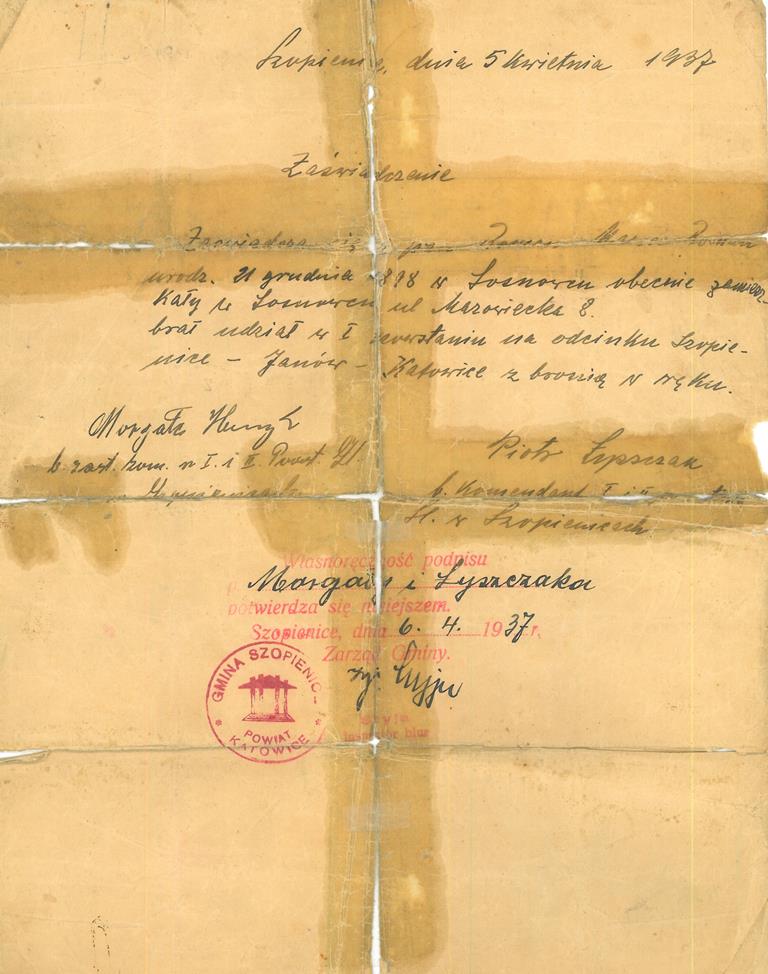 Szopienice, dnia 5 kwietnia 1937
Zaświadczenie
Zaświadcza się
urodz. 21 grudnia 1898 w Sosnowcu obecnie zamiesz-
kały w Sosnowcu ul Mazowiecka 8.
brał udział w I powstaniu na odcinku Szopie-
nice - Janów - Katowice z bronią w ręku.
Morgała Henryk
b. zast. kom. w I. i II. Powst. Śl.
w Szopienicach
Piotr Łyszczak
b. Komendant I i II
Śl. w Szopienicach
Własnoręczność podpisu
Morgały i Łyszczaka
potwierdza się niniejszem.
Szopienice, dnia 6. 4. 1937 r.
Zarząd Gminy.
GMINA SZOPIENICE
POWIAT
KATOWICE